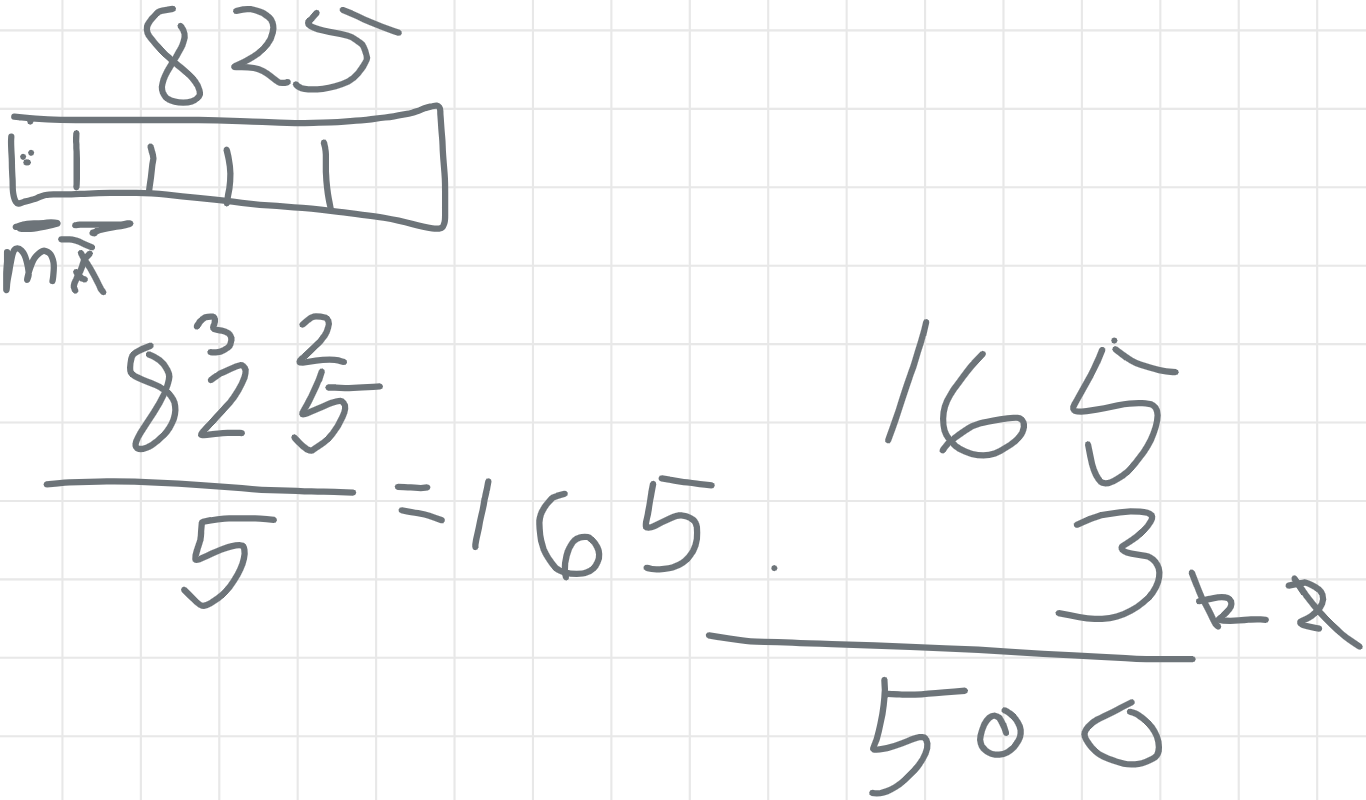 825
m
3 2
825
5
=165.
165
3
500